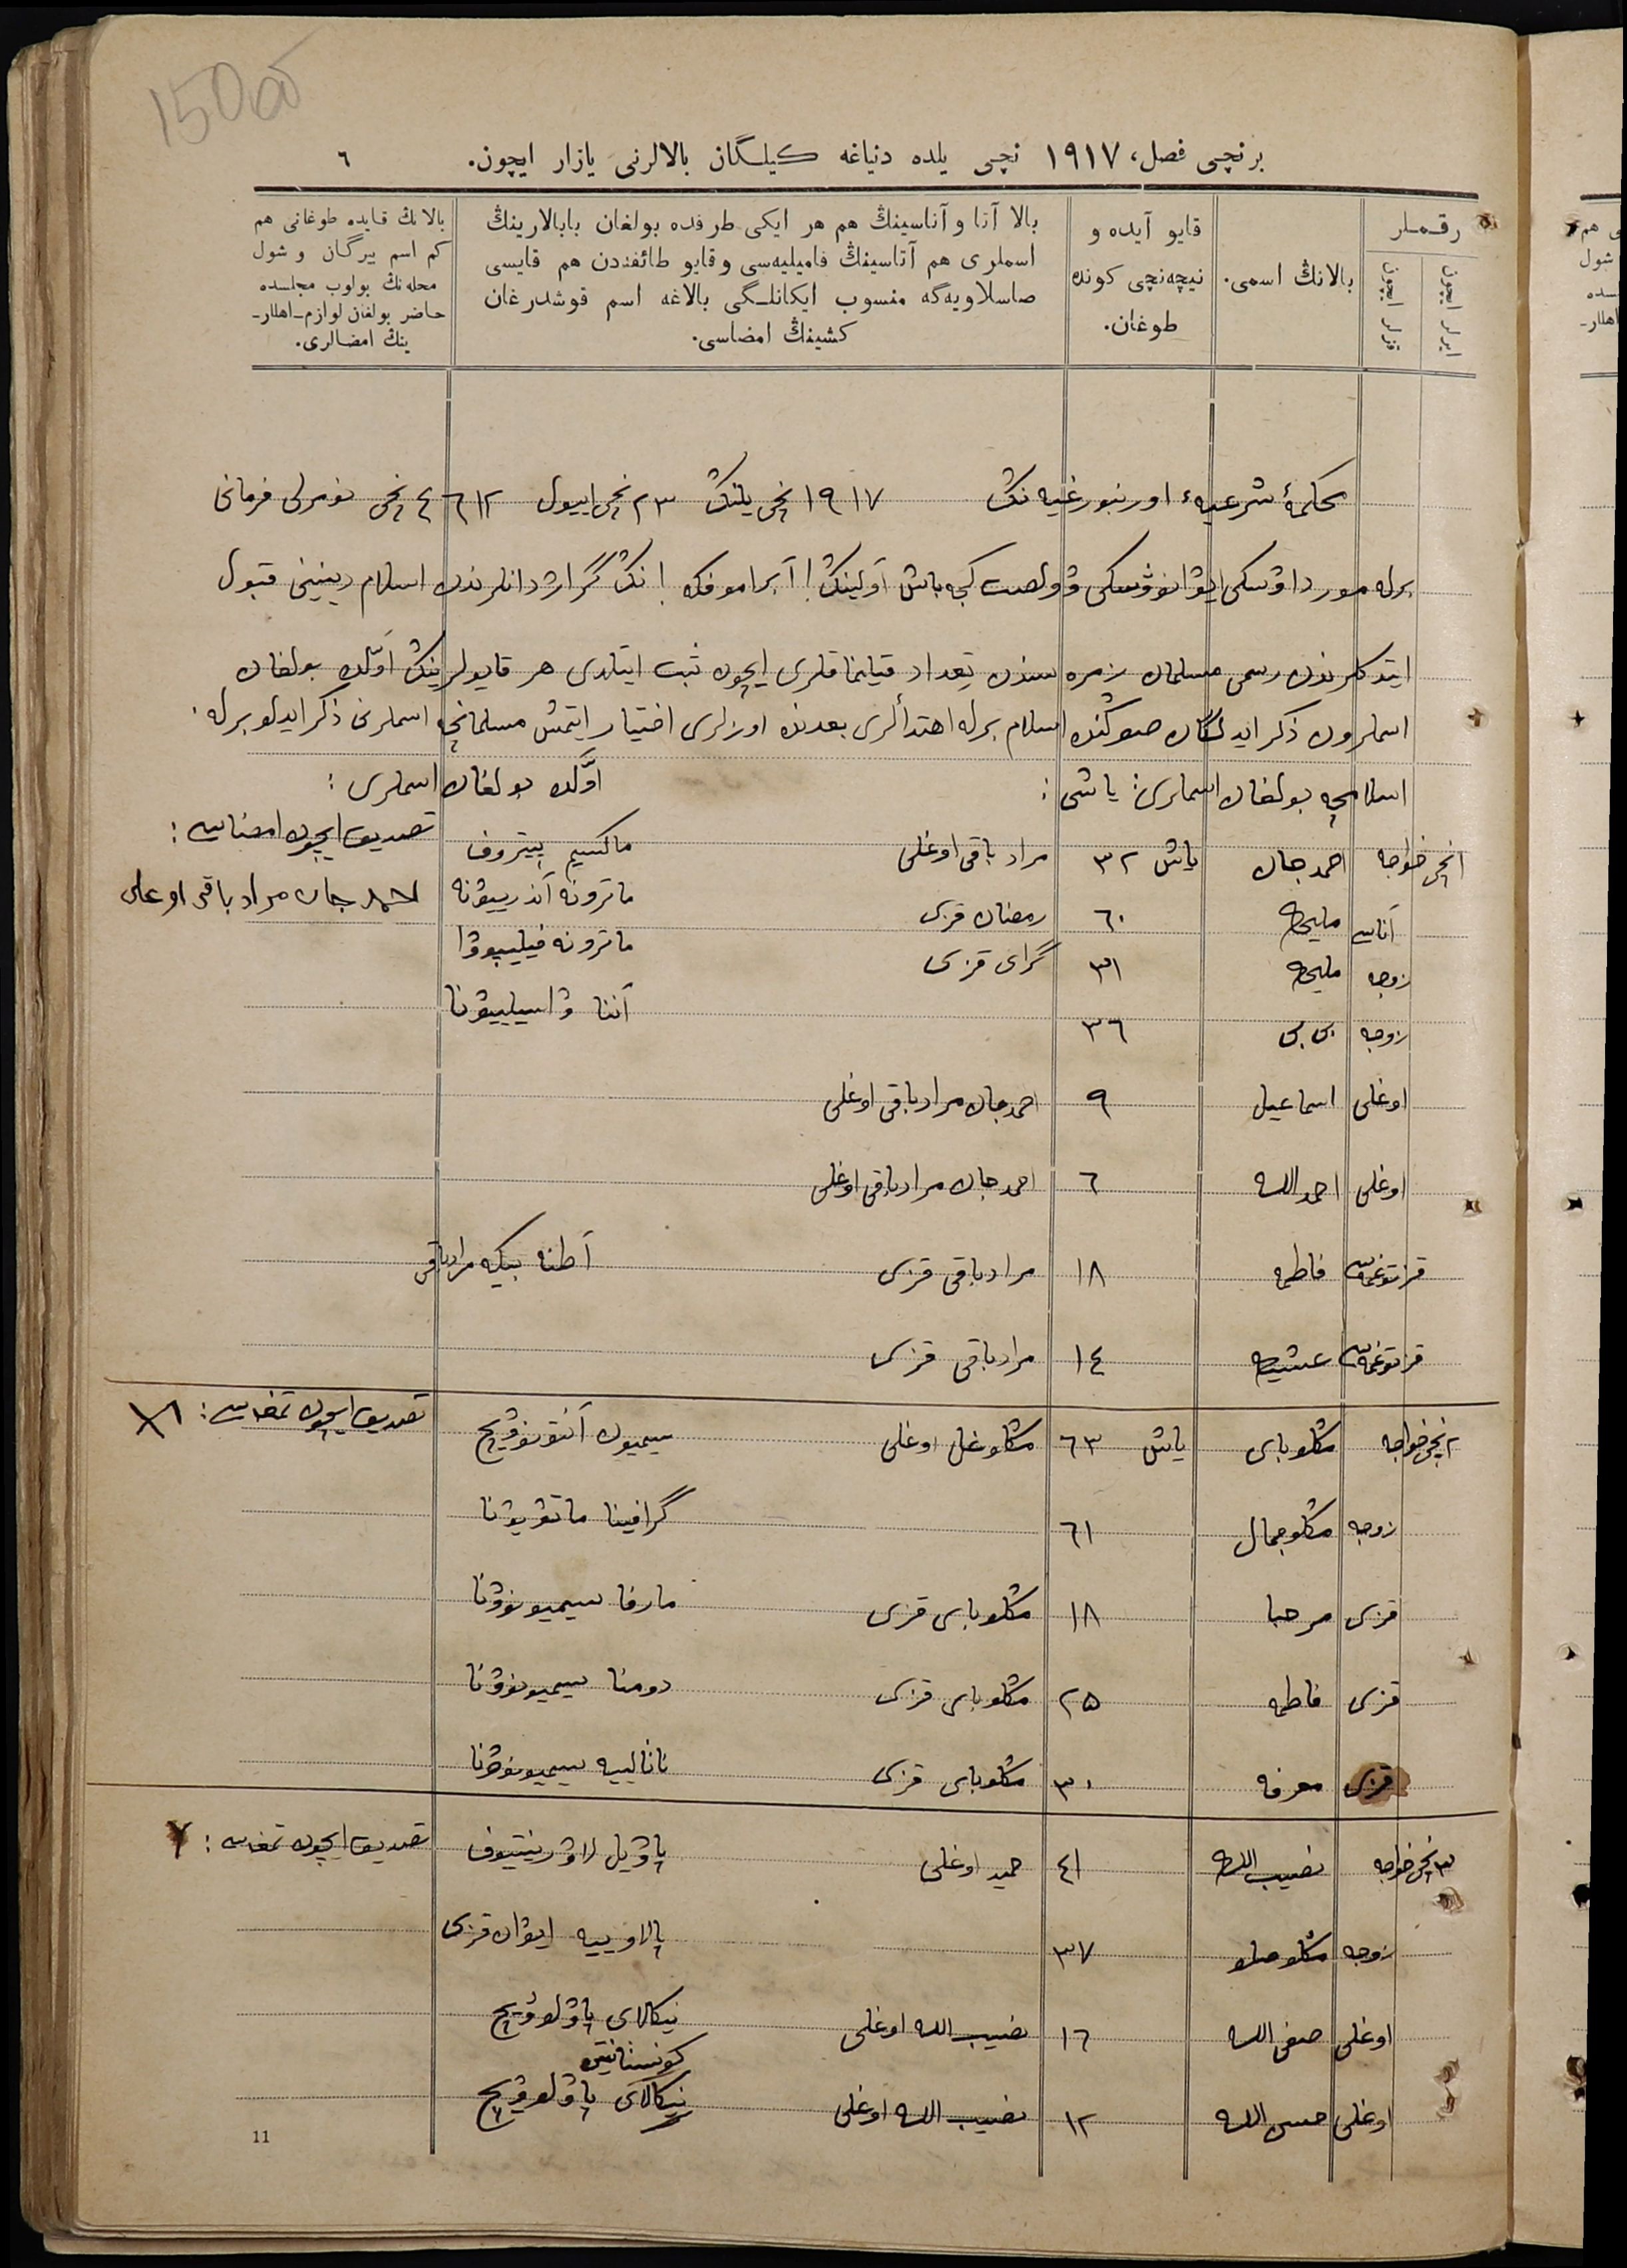 15000
برنچی فصل، ١٩١٧ نچی یلده دنیاغه كیلگان بالالرنی یازار ایچون. ٦
رقملر
ایرلر ایچون
قزلر ایچون
بالانڭ اسمی.
قایو آیده و
نیچه‌نچی كونده
طوغان.
بالا آتا و آناسینڭ هم هر ایكی طرفده بولغان بابالارینڭ
اسملری هم آتاسینڭ فامیلیه‌سی و قایو طائفه‌دن هم قایسی
صاسلاویه‌گه منسوب ایكانلگی بالاغه اسم قوشدرغان
كشینڭ امضاسی.
بالانڭ قایده طوغانی هم
كم اسم بیرگان و شول
محله‌نڭ بولوب مجلسده
حاضر بولغان لوازم-اهللر-
ینڭ امضالری.
محكمهٔ شرعیهٔ اورنبورغیه نڭ ١٩١٧ نچی یلنڭ ٢٣ نچی ایيول ٤٦١٢ نچی نومرلی فرمانی
برله ایوانوۋسكی ۋولصت كچه باش آولینڭ آبراموفكه نڭ گراژدانلرندن اسلام دینینی قبول
ایتدكلرندن رسمی مسلمان زمره سندن تعداد قیلنماقلری ایچون ثبت ایتلدی هر قایولرینڭ اوّلده بولغان
اسملرون ذكر ایدلگان صوڭنده اسلام برله اهتدألری بعدنده اوزلری اختیار ایتمش مسلمانچه اسملرنی ذكر ایدلو برله.
اسلامچه بولغان اسملری: یاشی: اوّلده بولغان اسملری:
تصدیق ایچون امضاسی:
١نچی خواجه احمدجان یاش ٣٢ مرادباقی اوغلی ماكسیم پیتروف
احمدجان مرادباقی اوغلی
آناسی ملیحه ٦٠ رمضان قزی ماترونه آندرییۋنه
زوجه ملیحه ٣١ گرای قزی ماترونه فیلیپوۋا
زوجه بی بی ٣٦ آننا ۋاسیلییۋنا
اوغلی اسماعیل ٩ احمدجان مرادباقی اوغلی
اوغلی احمدالله ٦ احمدجان مرادباقی اوغلی
قزتوغمه‌سی فاطمه ١٨ مرادباقی قزی آطنه بیكه مرادباقی
قزتوغمه‌سی ١٤ مرادباقی قزی
٢نچی خواجه مڭلوبای یاش ٦٣ اوغلی سیمیون آنتونوۋیچ تصدیق ایچون تمغاسی:
زوجه مڭلوجمال ٦١ گرافینا ماتۋییۋنا
قزی مرحبا ١٨ مڭلوبای قزی مارفا سیمیونوۋنا
قزی فاطمه ٢٥ مڭلوبای قزی دومنا سیمیونوۋنا
قزی معرفه ٣٠ مڭلوبای قزی ناتالییه سیمیونوۋنا
٣نچی خواجه نصیب الله ٤١ حمید اوغلی پاۋیل لاۋرینتیوف تصدیق ایچون تمغاسی:
زوجه مڭلوصلو ٣٧ ایۋان قزی
اوغلی صفی الله ١٦ نصیب الله اوغلی نیكالای پاۋلوۋیچ
كونستانتین
اوغلی حسن الله ١٢ نصیب الله اوغلی نیكالای پاۋلوۋیچ
11